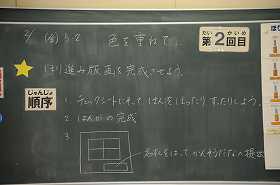 2/ (金) 5-2 色を重ねて
たい かいめ
第2回目
ほり進み版画を完成させよう。
じゅんじょ
順序
1. チェックシートにそって はんをほったり すったりしよう。
2. はんがの完成
3
名札をはって かんそうだなへ提出